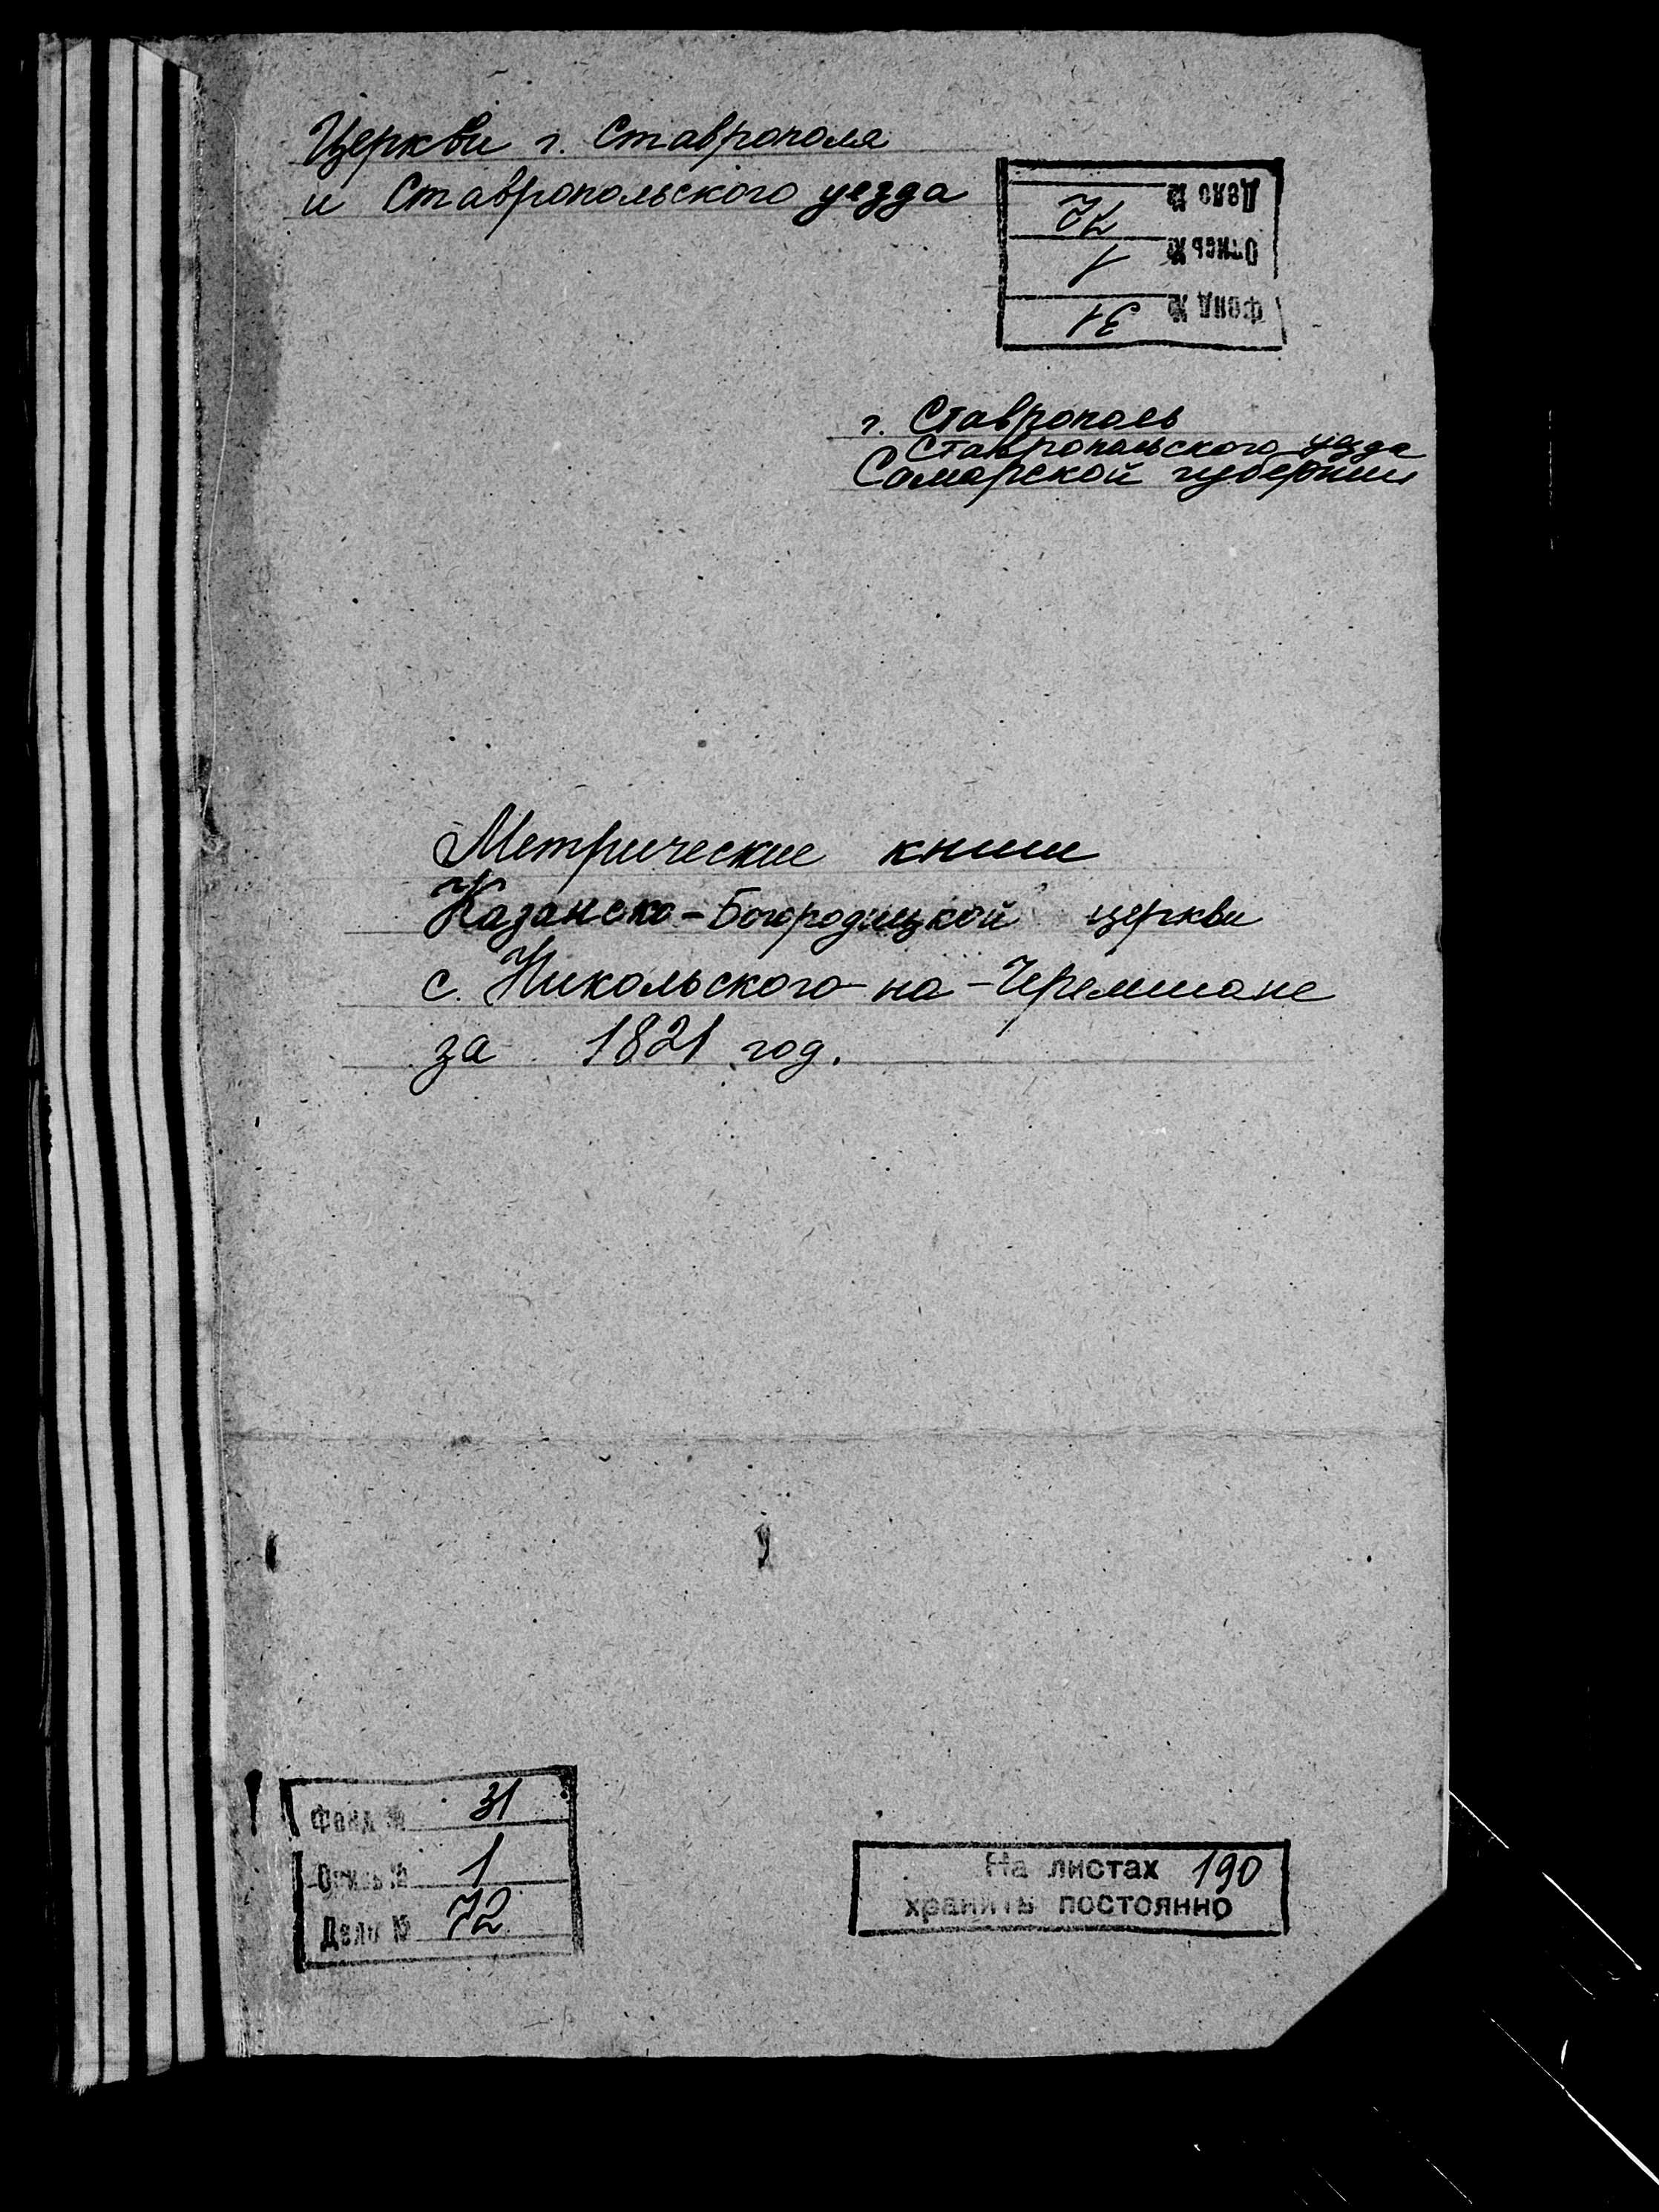 Церкви г. Ставрополя
и Ставропольского уезда
Дело № 72
Опись № 1
Фонд № 31
г. Ставрополь
Ставропольского уезда
Самарской губернии
Метрические книги
Казанско-Богородицкой церкви
с. Никольского-на-Черемшане
за 1821 год.
Фонд № 31
Опись № 1
Дело № 72
На листах 190
хранить постоянно